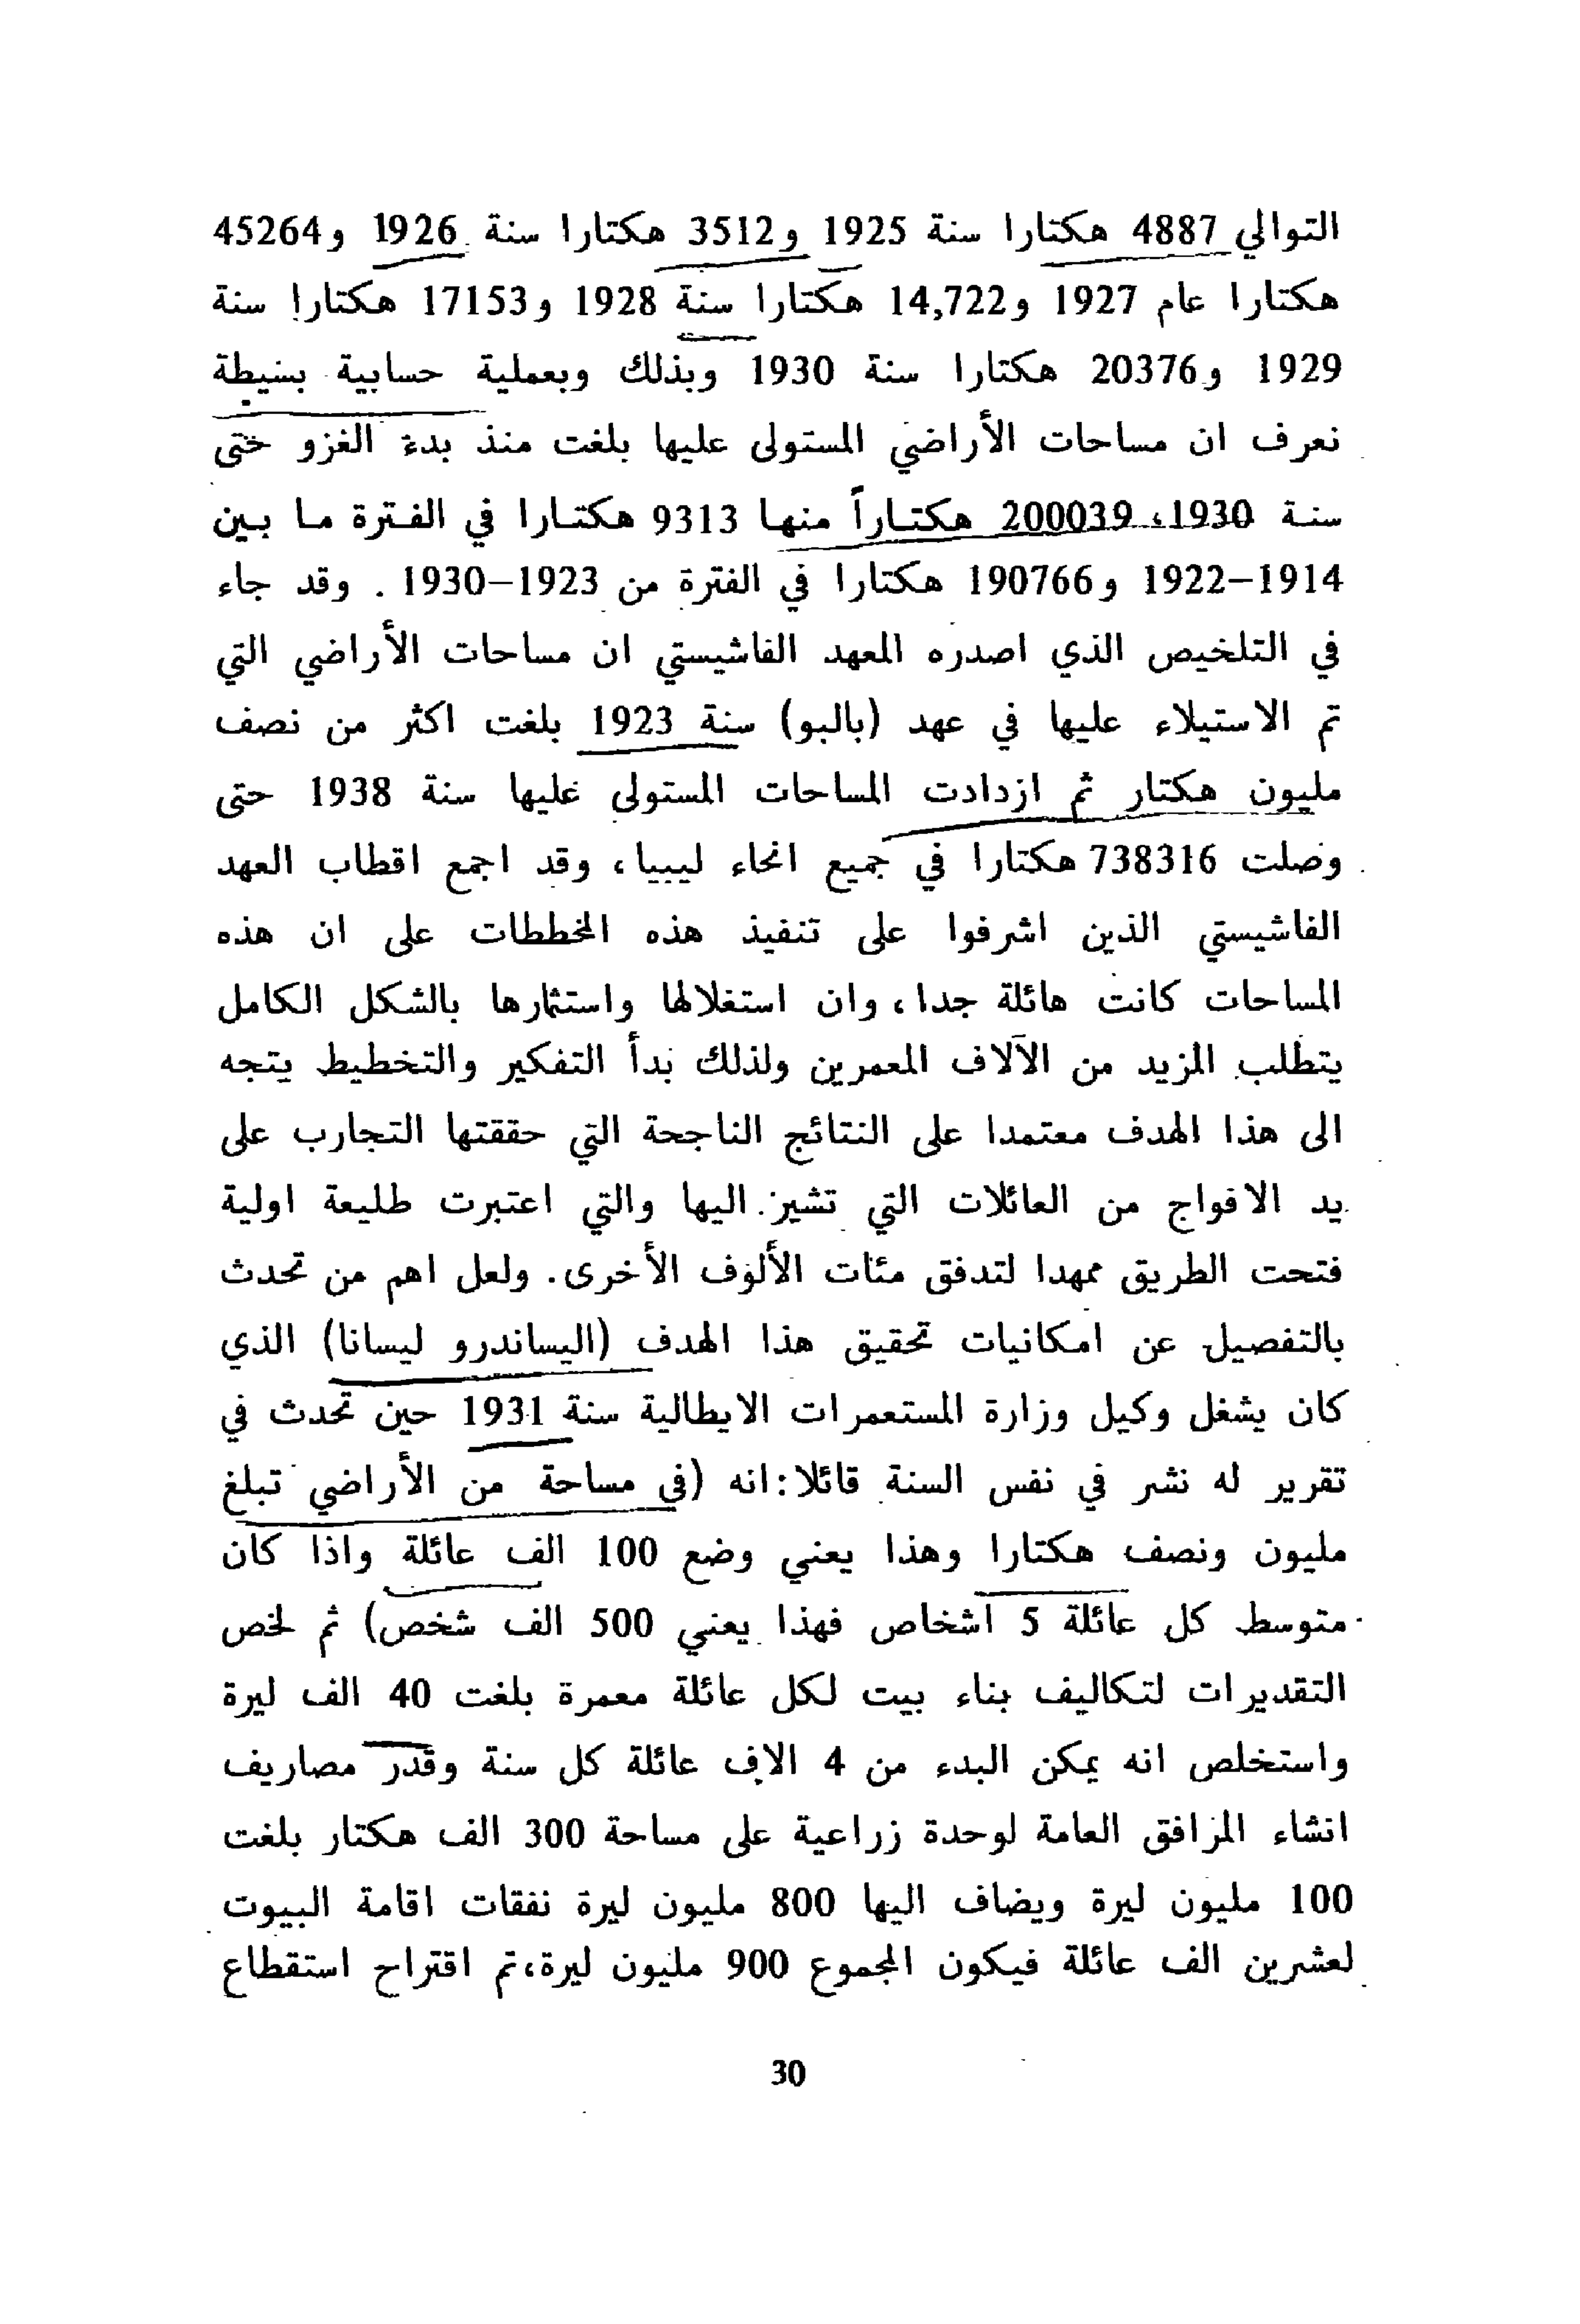 التوالي 4887 هكتارا سنة 1925 و3512 هكتارا سنة 1926 و45264
هكتارا عام 1927 و14,722 هكتارا سنة 1928 و17153 هكتارا سنة
1929 و20376 هكتارا سنة 1930 وبذلك وبعملية حسابية بسيطة
نعرف ان مساحات الأراضي المستولى عليها بلغت منذ بدء الغزو حتى
سنة 1930، 200039 هكتاراً منها 9313 هكتارا في الفترة ما بين
1914–1922 و190766 هكتارا في الفترة من 1923–1930 . وقد جاء
في التلخيص الذي اصدره المعهد الفاشيستي ان مساحات الأراضي التي
تم الاستيلاء عليها في عهد (بالبو) سنة 1923 بلغت اكثر من نصف
مليون هكتار ثم ازدادت المساحات المستولى عليها سنة 1938 حتى
وصلت 738316 هكتارا في جميع انحاء ليبيا، وقد اجمع اقطاب العهد
الفاشيستي الذين اشرفوا على تنفيذ هذه المخططات على ان هذه
المساحات كانت هائلة جدا، وان استغلالها واستثمارها بالشكل الكامل
يتطلب المزيد من الآلاف المعمرين ولذلك بدأ التفكير والتخطيط يتجه
الى هذا الهدف معتمدا على النتائج الناجحة التي حققتها التجارب على
يد الافواج من العائلات التي تشير اليها والتي اعتبرت طليعة اولية
فتحت الطريق ممهدا لتدفق مئات الألوف الأخرى. ولعل اهم من تحدث
بالتفصيل عن امكانيات تحقيق هذا الهدف (اليساندرو ليسانا) الذي
كان يشغل وكيل وزارة المستعمرات الايطالية سنة 1931 حين تحدث في
تقرير له نشر في نفس السنة قائلا: انه (في مساحة من الأراضي تبلغ
مليون ونصف هكتارا وهذا يعني وضع 100 الف عائلة واذا كان
متوسط كل عائلة 5 اشخاص فهذا يعني 500 الف شخص) ثم لخص
التقديرات لتكاليف بناء بيت لكل عائلة معمرة بلغت 40 الف ليرة
واستخلص انه يمكن البدء من 4 الاف عائلة كل سنة وقدر مصاريف
انشاء المرافق العامة لوحدة زراعية على مساحة 300 الف هكتار بلغت
100 مليون ليرة ويضاف اليها 800 مليون ليرة نفقات اقامة البيوت
لعشرين الف عائلة فيكون المجموع 900 مليون ليرة،تم اقتراح استقطاع
30